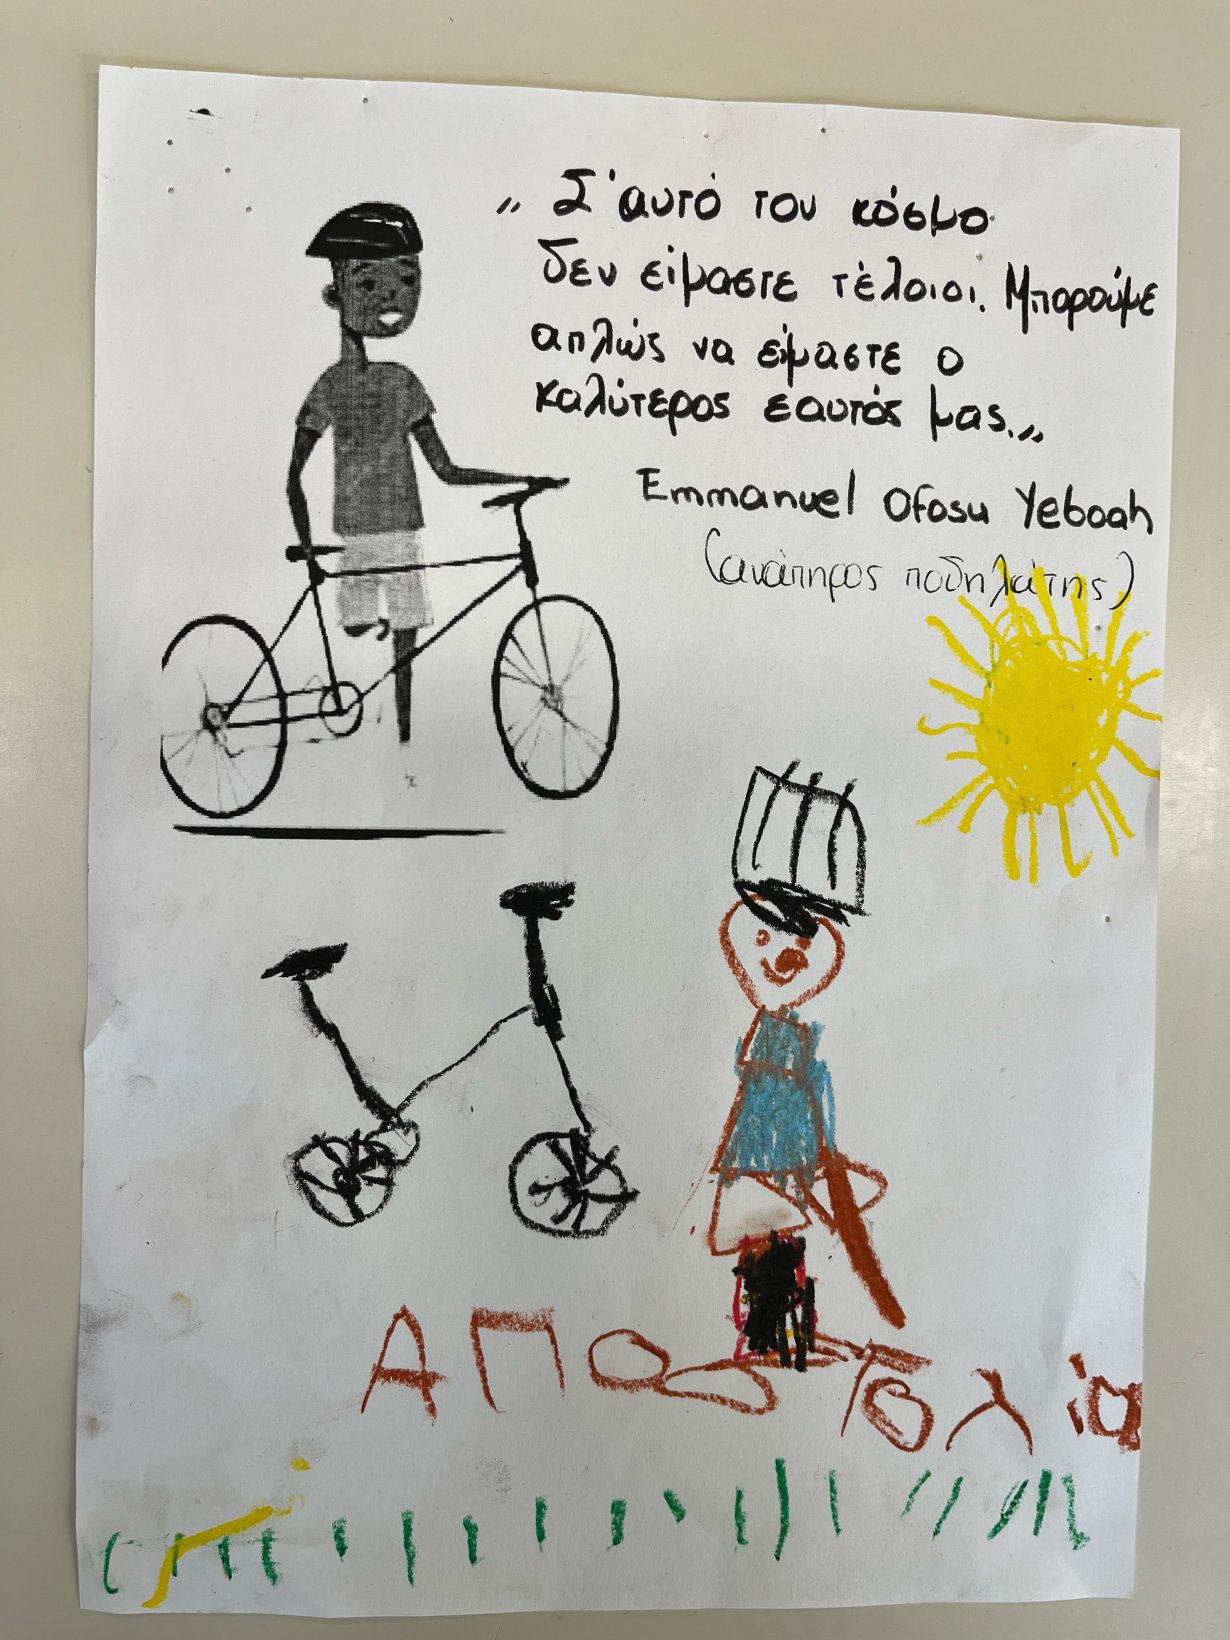 „ Σ'αυτό τον κόσμο
δεν είμαστε τέλοιοι. Μπορούμε
απλώς να είμαστε ο
καλύτερος εαυτός μας.„
Emmanuel Ofosu Yeboah
(ανάπηρος ποδηλάτης)
ΑΠΟΣΤΟλία